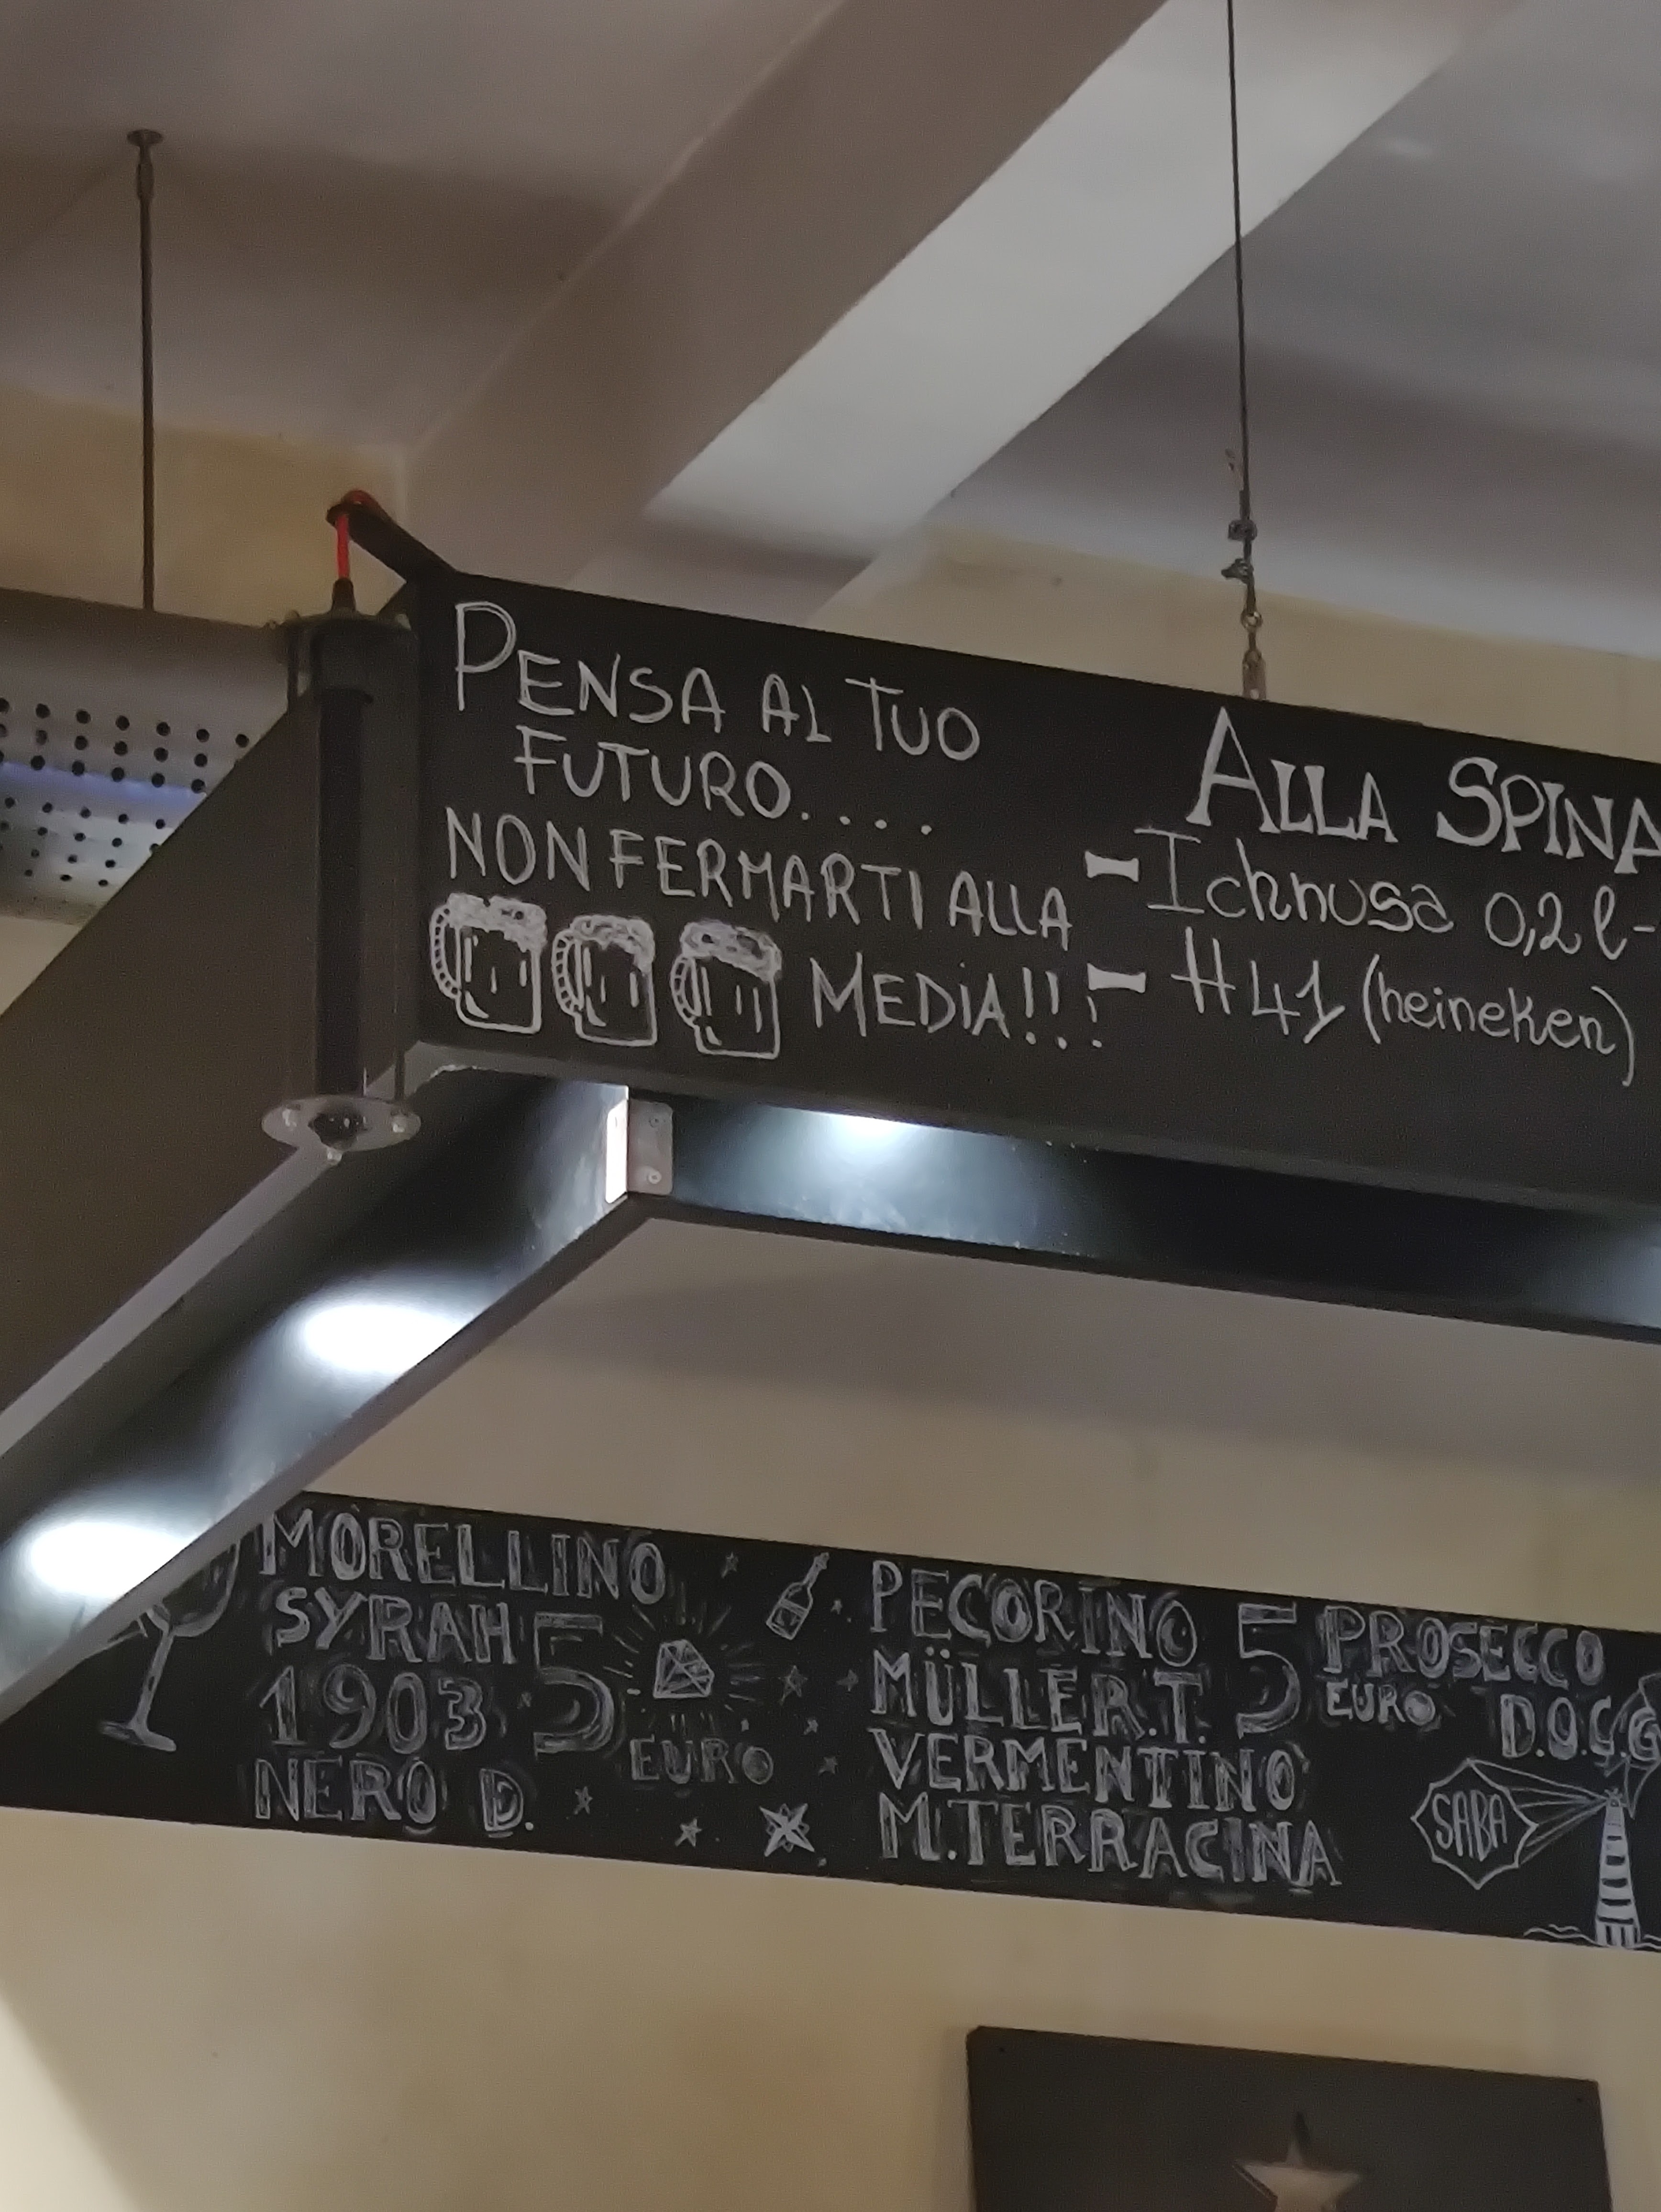 PENSA AL TUO
FUTURO....
NON FERMARTI ALLA
MEDIA!!!
ALLA SPINA
- Ichnusa 0,2 l -
- H41 (heineken)
MORELLINO
SYRAH
1903
NERO D.
5
EURO
PECORINO
MÜLLER.T.
VERMENTINO
M.TERRACINA
5
EURO
PROSECCO
D.O.C.G
SABA